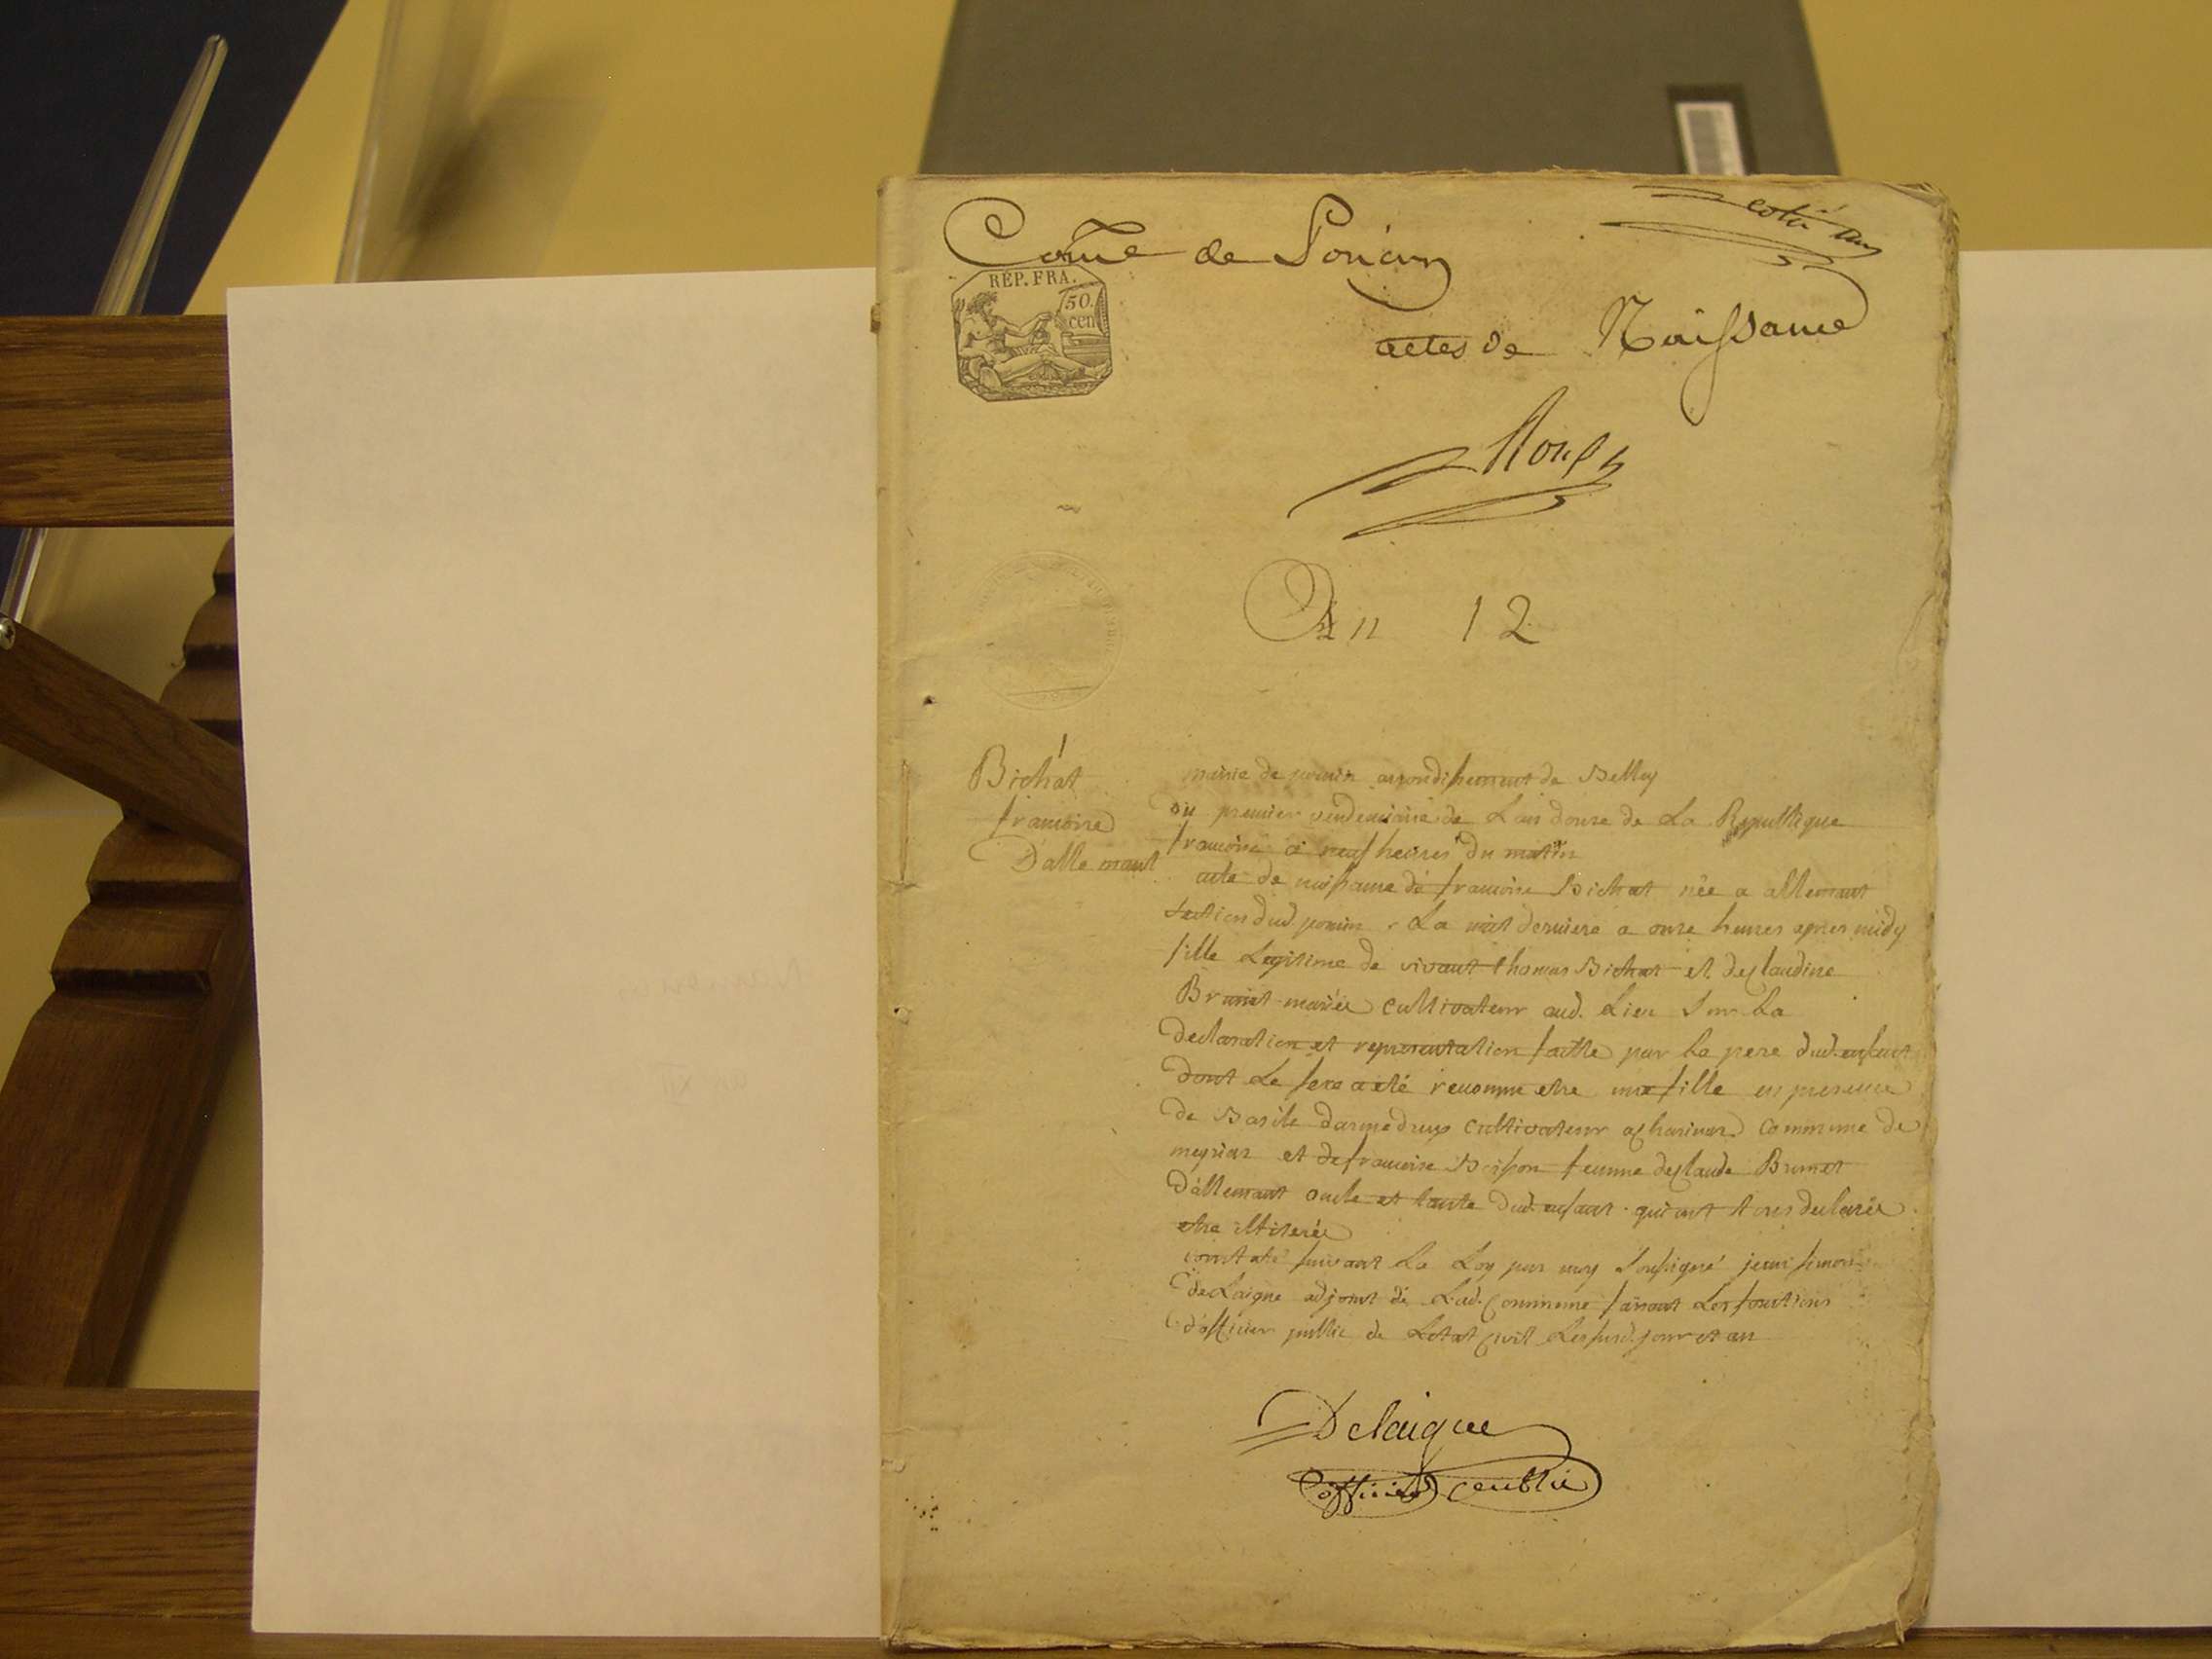 Comne de Poncin
coté un
RÉP. FRA.
50.
cen
actes de Naissance
An 12
Bichat
francoise
D'allemant
mairie de poncin arrondissement de Belley
du premier vendemiaire de L'an douze de La Republique
francoise a neuf heures du matin
acte de naissance de francoise Bichat née a allemant
section dud. poncin . La nuit derniere a onze heures apres midy
fille Legitime de vivant thomas Bichat et de claudine
Brunet mariés cultivateur aud. Lieu Sur la
declaration et representation faitte par le pere dud. enfant
dont Le sexe a eté reconnu etre une fille en presence
de Basile darmedrux cultivateur a charinas commune de
meyriat et de francoise Boisson femme de claude Brunet
d'allemant oncle et tante dud. enfant qui ont tous declarés
etre illiterés
constaté suivant la Loy par moy Soussigné jean simon
deLaigue adjoint de Lad. commune faisant Les fonctions
d'officier public de Letat civil Les susd. jour et an
Delaigue
officier public